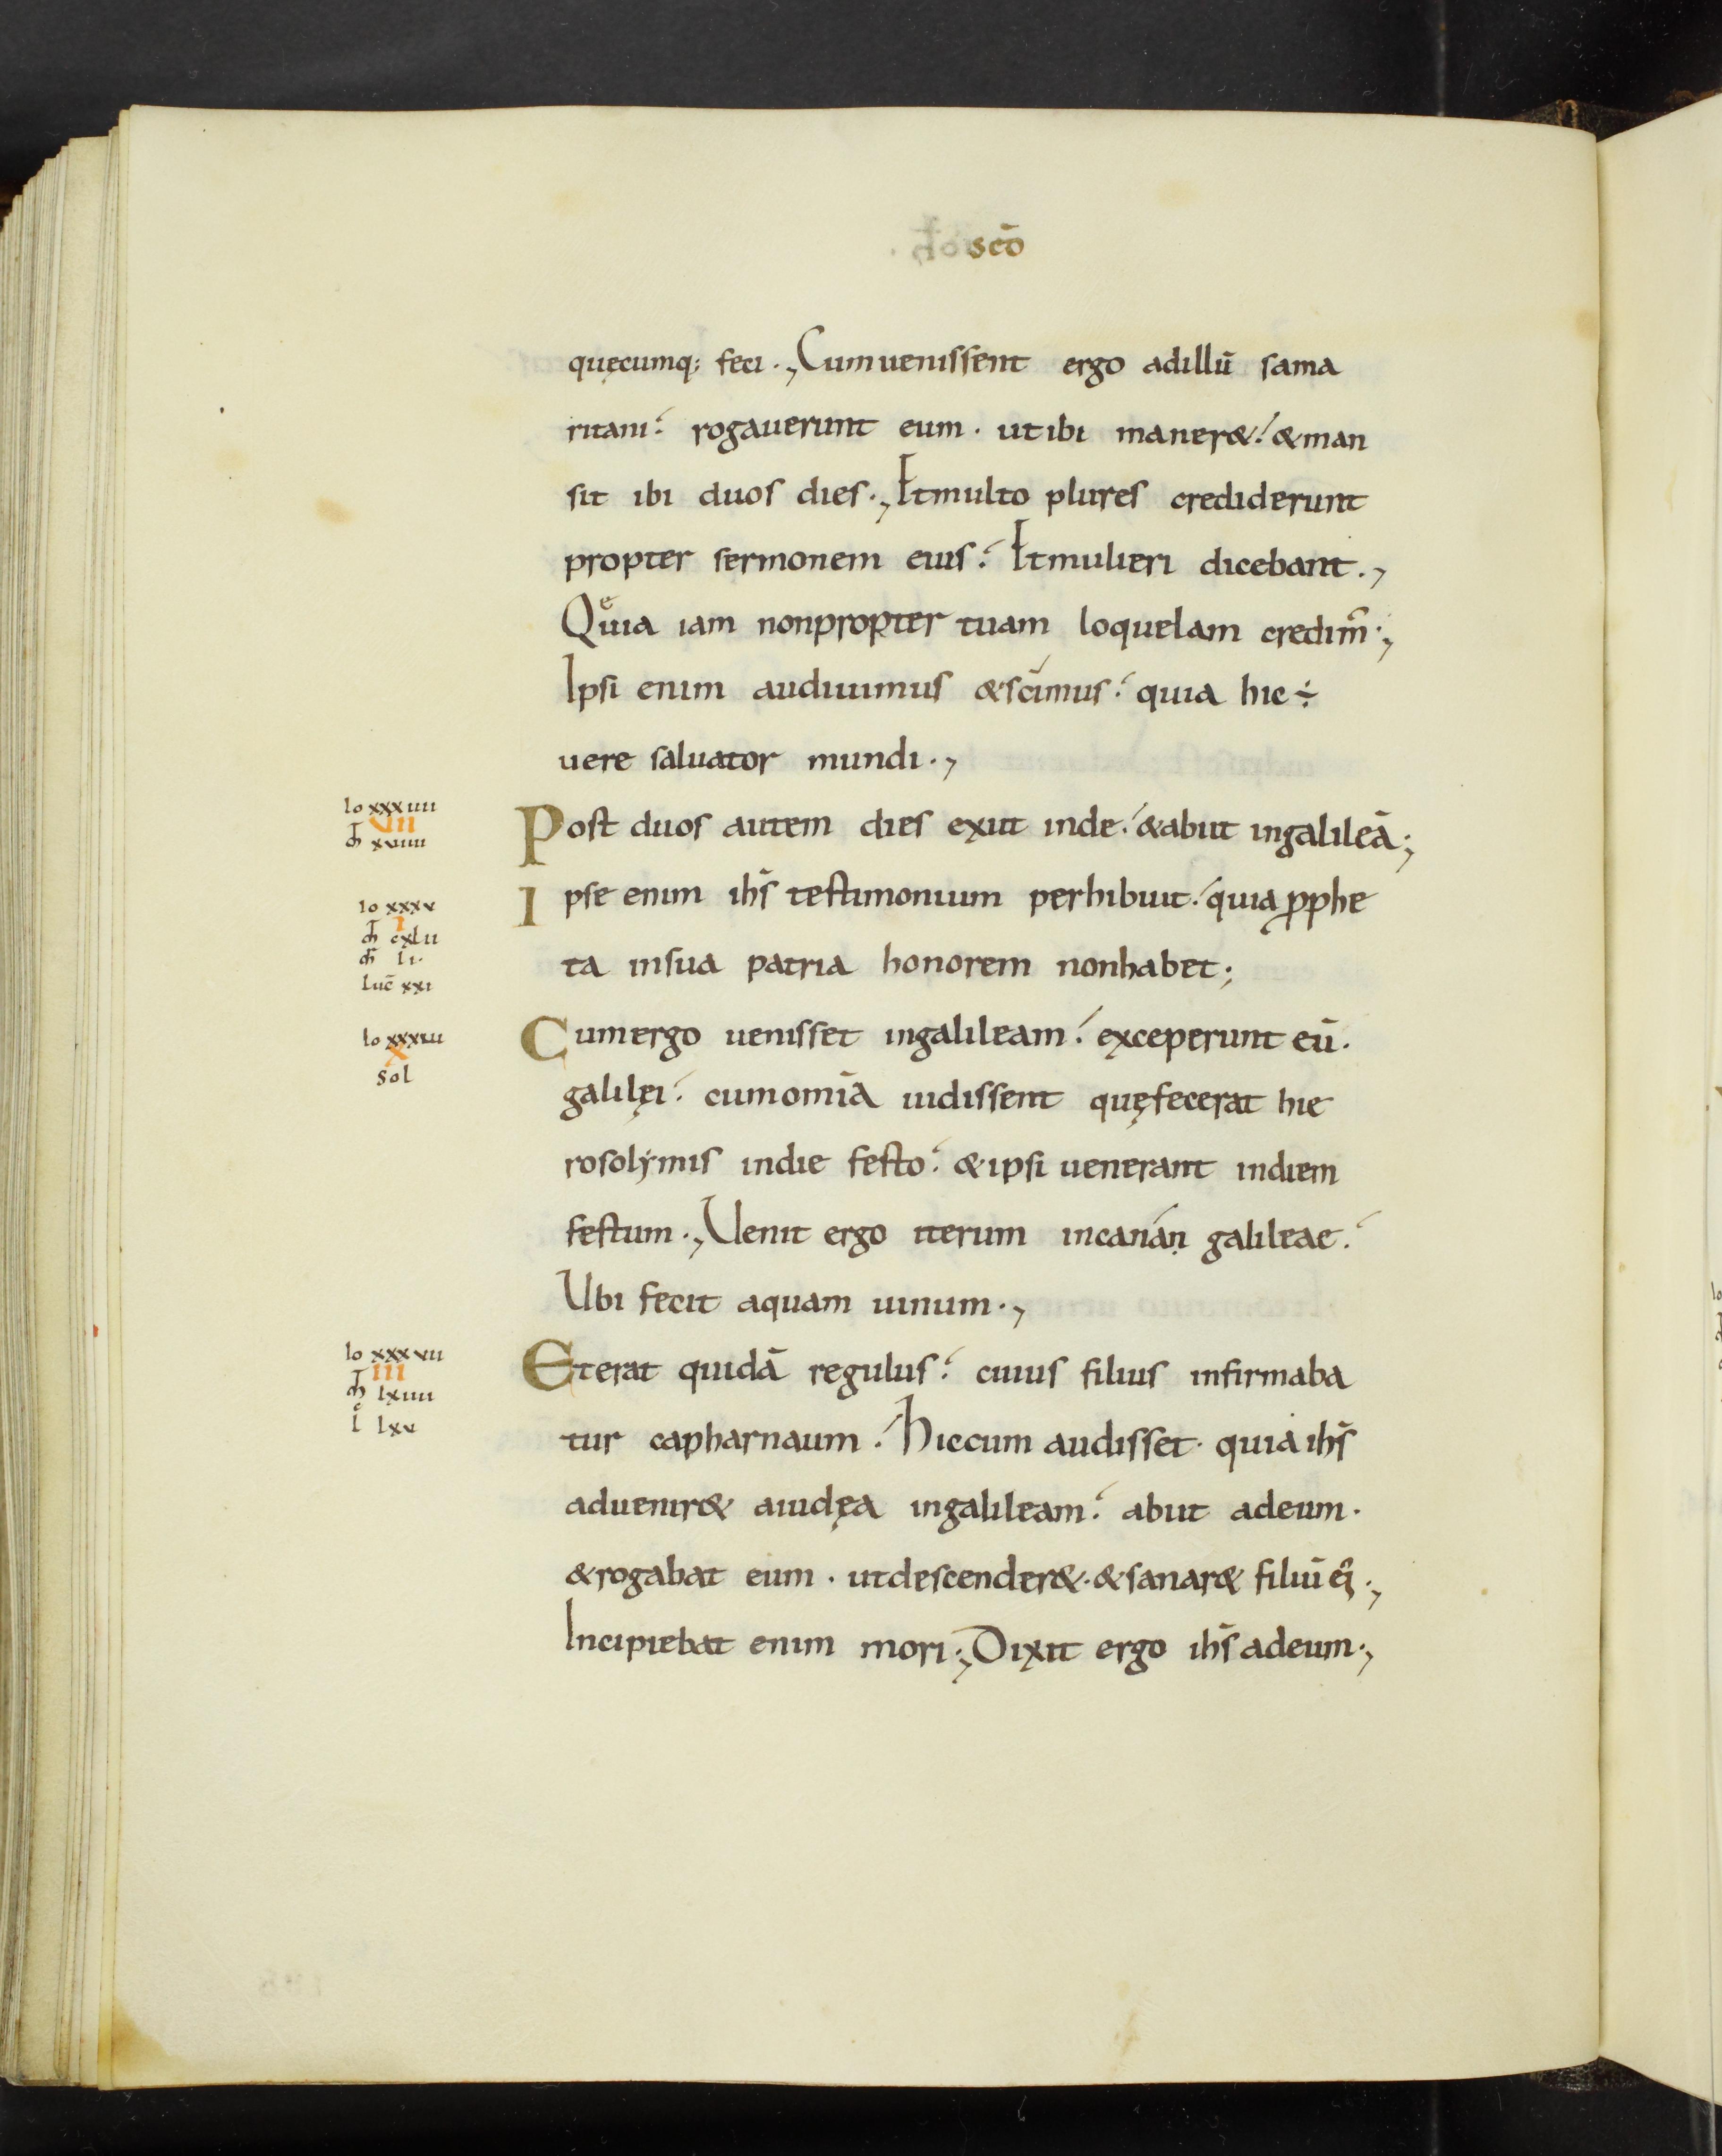 scō
quęcumq; feci ., Cumuenissent ergo adillū sama
ritani. rogauerunt eum . utibi maner&. &man
sit ibi duos dies ., Etmulto plures crediderunt
propter sermonem eius. Etmulieri dicebant .,
Quia iam nonpropter tuam loquelam credim̄ .,
Ipsi enim audiuimus &scimus. quia hic ÷
uere saluator mundi .,
Io xxxiiii
VII
m̄ xviiii
Post duos autem dies exiit inde. &abiit ingalileā .,
Io xxxv
I
m̄ cxlii
m̄ li.
luc̄ xxi
Ipse enim ihs̄ testimonium perhibuit. quia pphe
ta insua patria honorem nonhabet;
Io xxxvi
X
sol
Cumergo uenisset ingalileam. exceperunt eū.
galilęi. cumomīa uidissent quęfecerat hie
rosolẏmis indie festo. &ipsi uenerant indiem
festum ., Uenit ergo iterum incanán galileae.
Ubi fecit aquam uinum .,
Io xxxvii
III
m̄ lxiiii
l lxv
Eterat quidā regulus. cuius filius infirmaba
tur capharnaum. Hiccum audisset. quia ihs̄
aduenir& aiudęa ingalileam. abiit adeum.
&rogabat eum . utdescender&. &sanar& filiū ei᾽ .,
Incipiebat enim mori ., Dixit ergo ihs̄ adeum .,